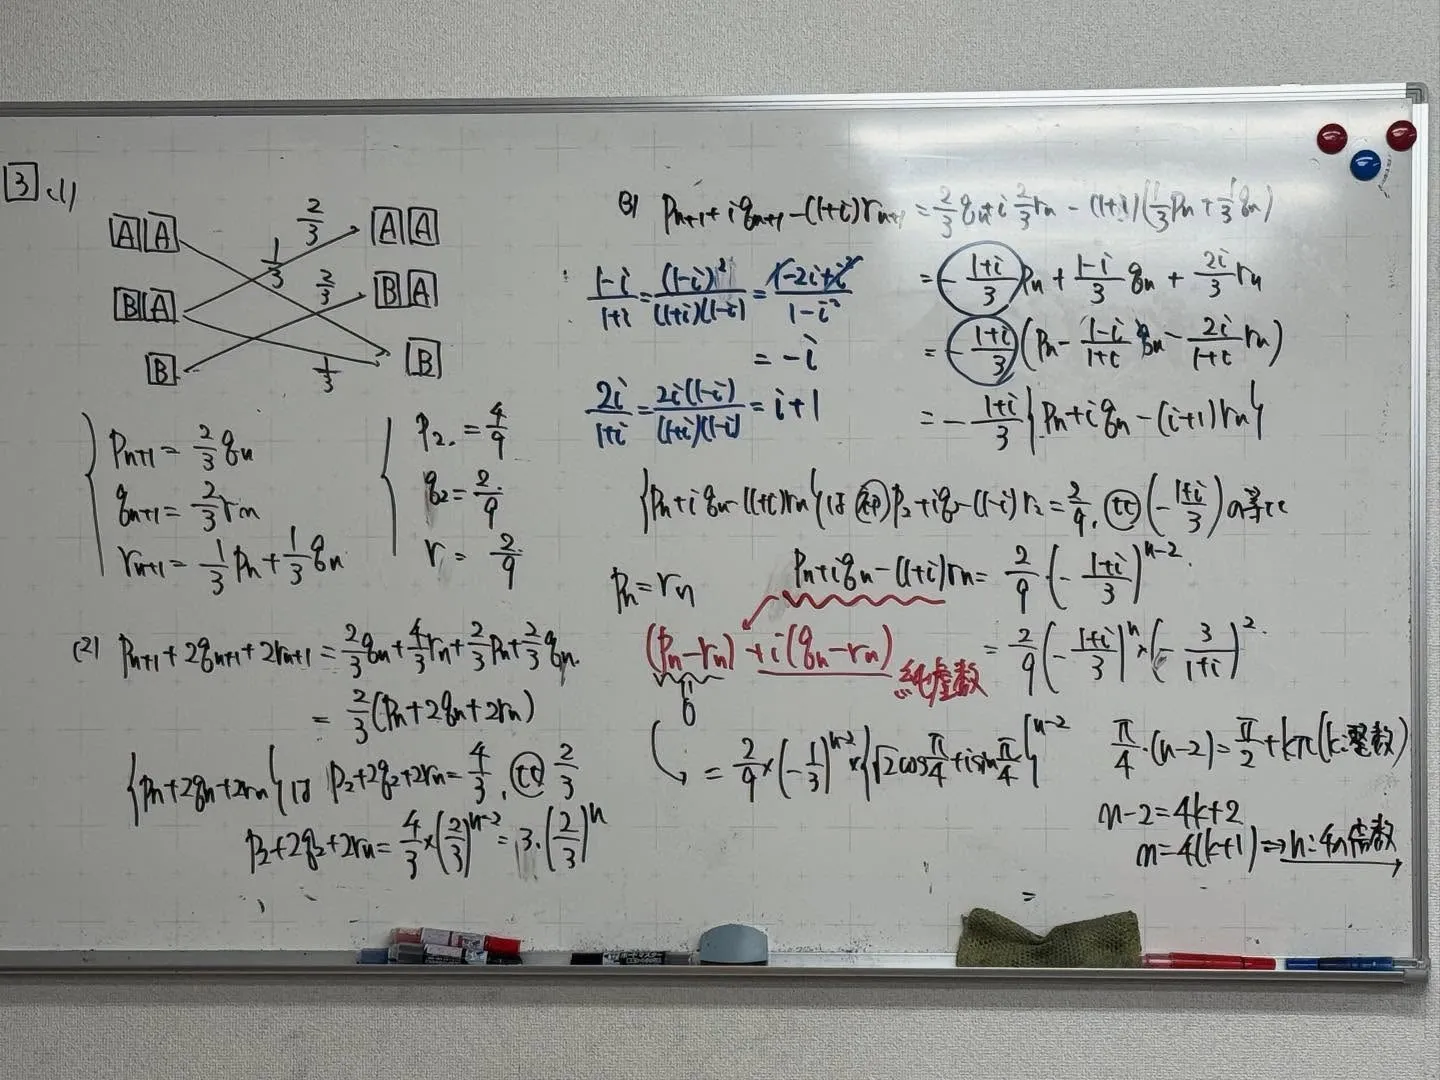 3 (1)
A A 2/3 A A
1/3 2/3
B A B A
B 1/3 B
p_{n+1} = 2/3 q_n
q_{n+1} = 2/3 r_n
r_{n+1} = 1/3 p_n + 1/3 q_n
p_2 = 4/9
q_2 = 2/9
r = 2/9
(2) p_{n+1} + 2q_{n+1} + 2r_{n+1} = 2/3 q_n + 4/3 r_n + 2/3 p_n + 2/3 q_n
= 2/3 (p_n + 2q_n + 2r_n)
{p_n + 2q_n + 2r_n} は p_2 + 2q_2 + 2r_n = 4/3, 比 2/3
p_2 + 2q_2 + 2r_n = 4/3 × (2/3)^{n-2} = 3・(2/3)^n
(3) p_{n+1} + i q_{n+1} - (1+i) r_{n+1} = 2/3 q_n + i 2/3 r_n - (1+i)(1/3 p_n + 1/3 q_n)
= - (1+i)/3 p_n + (1-i)/3 q_n + 2i/3 r_n
= - (1+i)/3 (p_n - (1-i)/(1+i) q_n - 2i/(1+i) r_n)
= - (1+i)/3 {p_n + i q_n - (i+1) r_n}
(1-i)/(1+i) = (1-i)^2/((1+i)(1-i)) = (1-2i+i^2)/(1-i^2)
= -i
2i/(1+i) = 2i(1-i)/((1+i)(1-i)) = i+1
{p_n + i q_n - (1+i) r_n} は 初 p_2 + i q - (1-i) r_2 = 2/9, 比 (- (1+i)/3) の等比
p_n + i q_n - (1+i) r_n = 2/9・(- (1+i)/3)^{n-2}
p_n = r_n
(p_n - r_n) + i(q_n - r_n) = 2/9 (- (1+i)/3)^n × (- 3/(1+i))^2
0 純虚数
= 2/9 × (-1/3)^{n-2} × {√2 cos π/4 + i sin π/4}^{n-2}
π/4・(n-2) = π/2 + kπ (k:整数)
n-2 = 4k+2
n = 4(k+1) ⇒ n:4の倍数
=